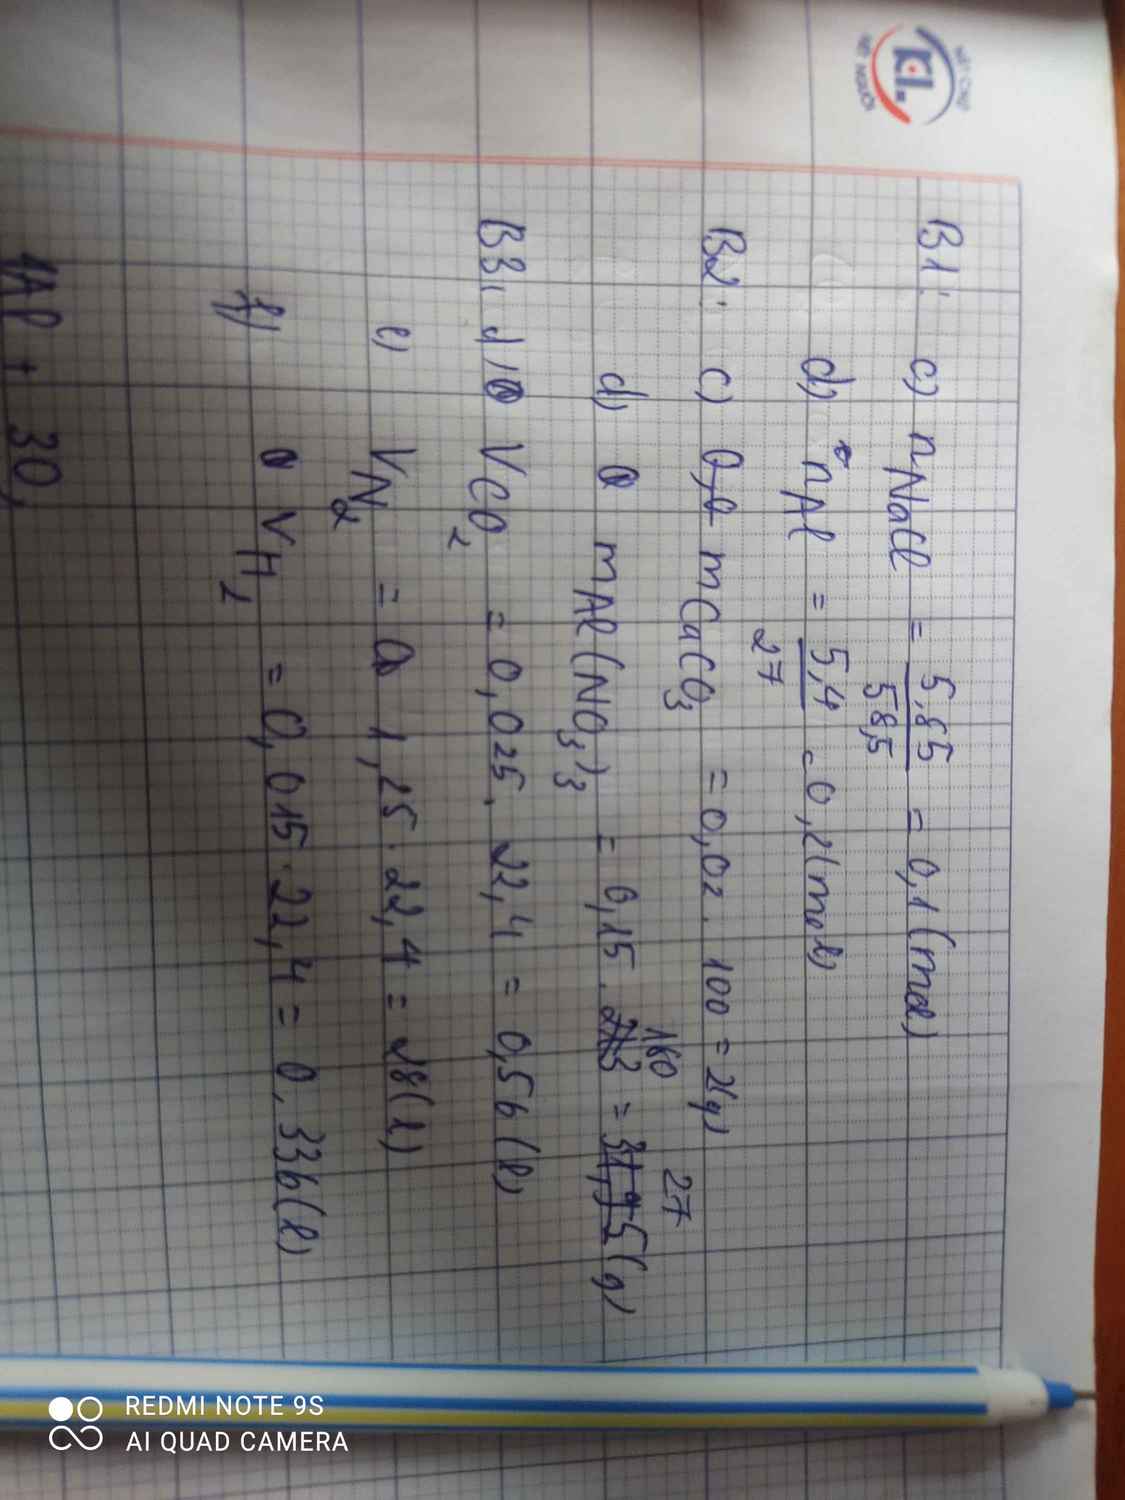 B1: c) nNaCl = 5,85 / 58,5 = 0,1 (mol)
d) nAl = 5,4 / 27 = 0,2 (mol)
B2: c) mCaCO3 = 0,02 . 100 = 2(g)
d) mAl(NO3)3 = 0,15 . 213 180 = 31,95 27 (g)
B3: d) VCO2 = 0,025 . 22,4 = 0,56 (l)
e) VN2 = 1,25 . 22,4 = 28 (l)
f) VH2 = 0,015 . 22,4 = 0,336 (l)
4Al + 3O2
REDMI NOTE 9S
AI QUAD CAMERA